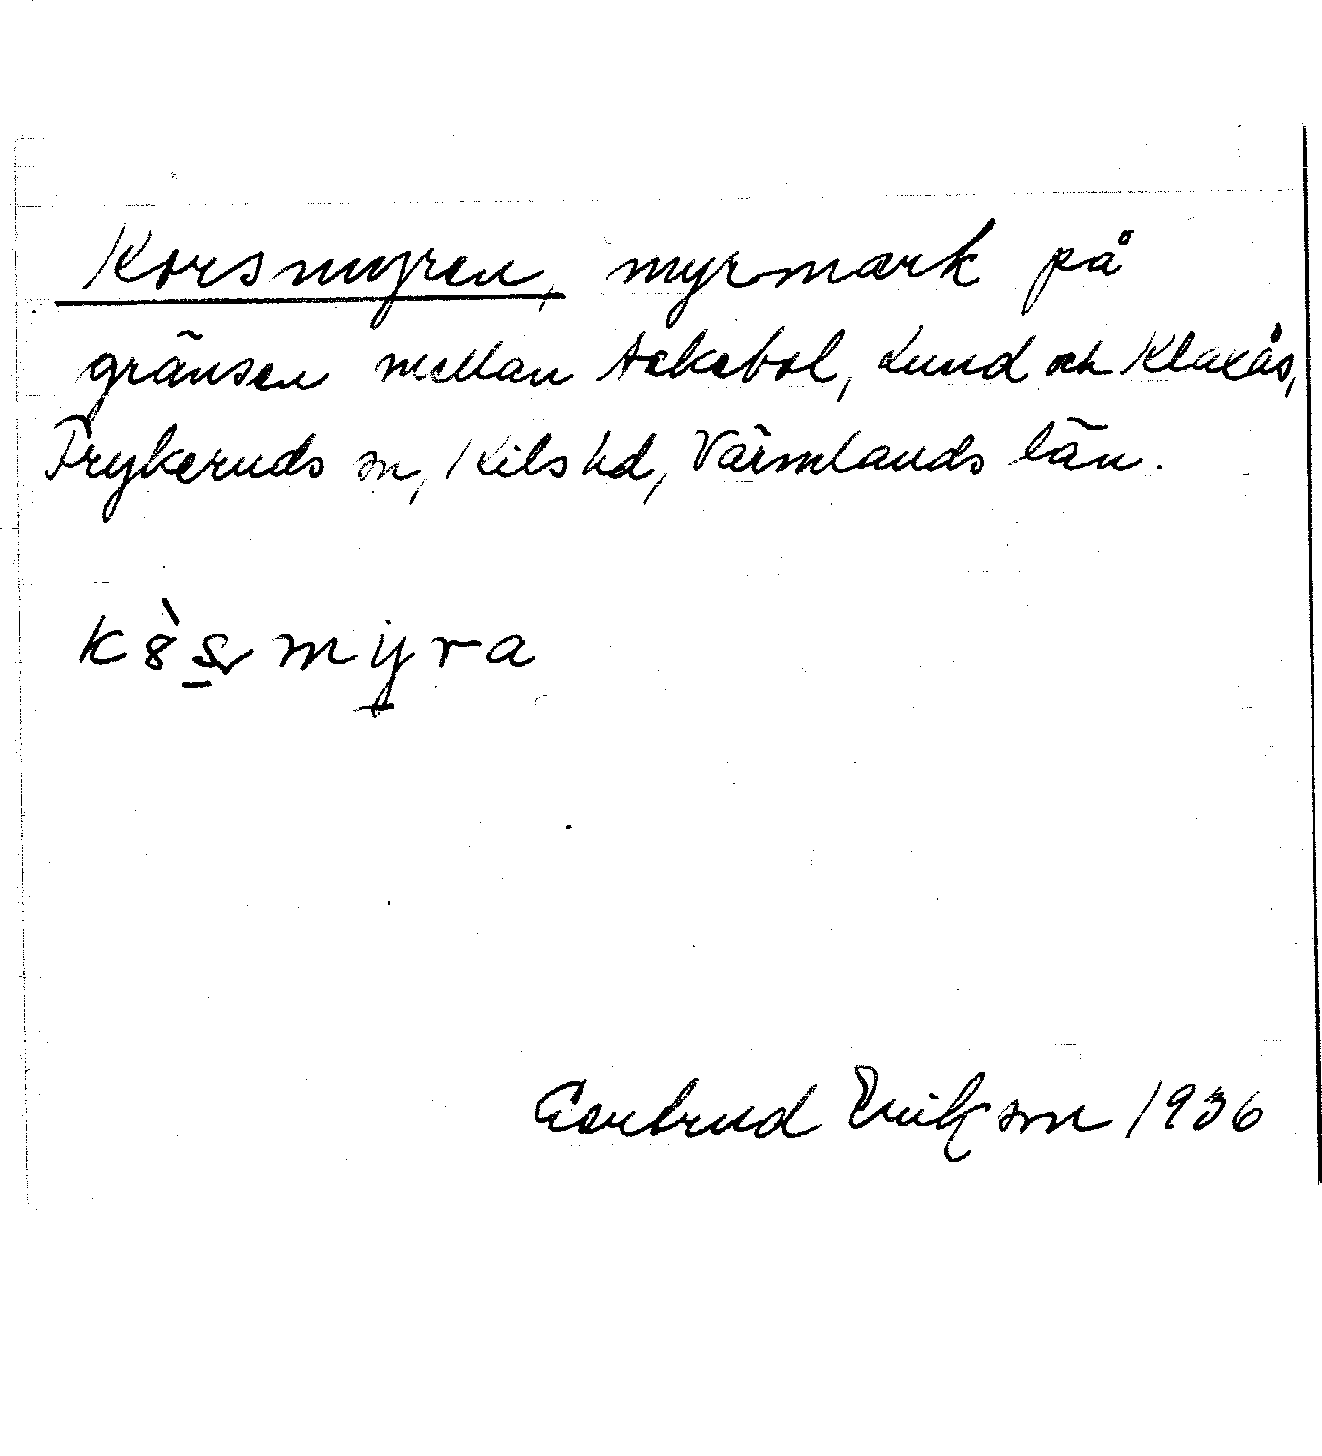 Korsmyren, myrmark på
gränsen mellan Askebol, Lund och Klaxås,
Frykeruds sn, Kils hd, Värmlands län.
Gertrud Erikson 1936